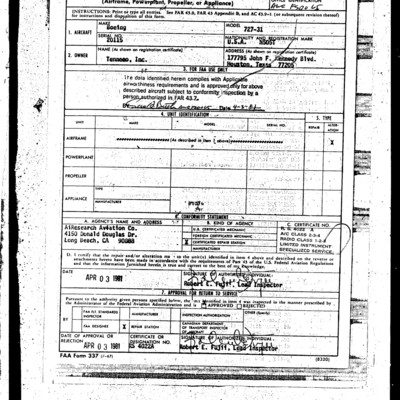 (Airframe, Powerplant, Propeller, or Appliance)
INSTRUCTIONS: Print or type all entries. See FAR 43.9, FAR 43 Appendix B, and AC 43.9-1 (or subsequent revision thereof)
for instructions and disposition of this form.
1. AIRCRAFT
MAKE
Boeing
MODEL
727-31
SERIAL NO.
20115
NATIONALITY AND REGISTRATION MARK
U.S.A.
2. OWNER
NAME (As shown on registration certificate)
Tenneco, Inc.
ADDRESS (As shown on registration certificate)
John F. Kennedy Blvd.
Houston, Texas 77205
3. FOR FAA USE ONLY
The data identified herein complies with Applicable
airworthiness requirements and is approved only for above
described aircraft subject to conformity inspection by a
person authorized in FAR 43.7.
4. UNIT IDENTIFICATION
5. TYPE
UNIT
MAKE
MODEL
SERIAL NO.
REPAIR
ALTERATION
AIRFRAME
(As described in item 1 above)
X
POWERPLANT
PROPELLER
APPLIANCE
TYPE
6. CONFORMITY STATEMENT
A. AGENCY'S NAME AND ADDRESS
B. KIND OF AGENCY
C. CERTIFICATE NO.
AiResearch Aviation Co.
4150 Donald Douglas Dr.
Long Beach, CA 90808
U.S. CERTIFICATED MECHANIC
FOREIGN CERTIFICATED MECHANIC
X CERTIFICATED REPAIR STATION
MANUFACTURER
A/C CLASS 2-3-4
RADIO CLASS 1-2-3
LIMITED INSTRUMENT
SPECIALIZED SERVICE
DATE
APR 03 1981
SIGNATURE OF AUTHORIZED INDIVIDUAL
Robert E. Fujii, Lead Inspector
7. APPROVAL FOR RETURN TO SERVICE
Pursuant to the authority given persons specified below, the unit identified in item 4 was inspected in the manner prescribed by
the Administrator of the Federal Aviation Administration and is APPROVED REJECTED
BY
FAA FLT. STANDARDS INSPECTOR
MANUFACTURER
INSPECTION AUTHORIZATION
OTHER (Specify)
FAA DESIGNEE
X REPAIR STATION
CANADIAN DEPARTMENT OF TRANSPORT INSPECTOR OF AIRCRAFT
DATE OF APPROVAL OR REJECTION
APR 03 1981
CERTIFICATE OR DESIGNATION NO.
RS 4022A
SIGNATURE OF AUTHORIZED INDIVIDUAL
Robert E. Fujii, Lead Inspector
FAA Form 337
(8320)